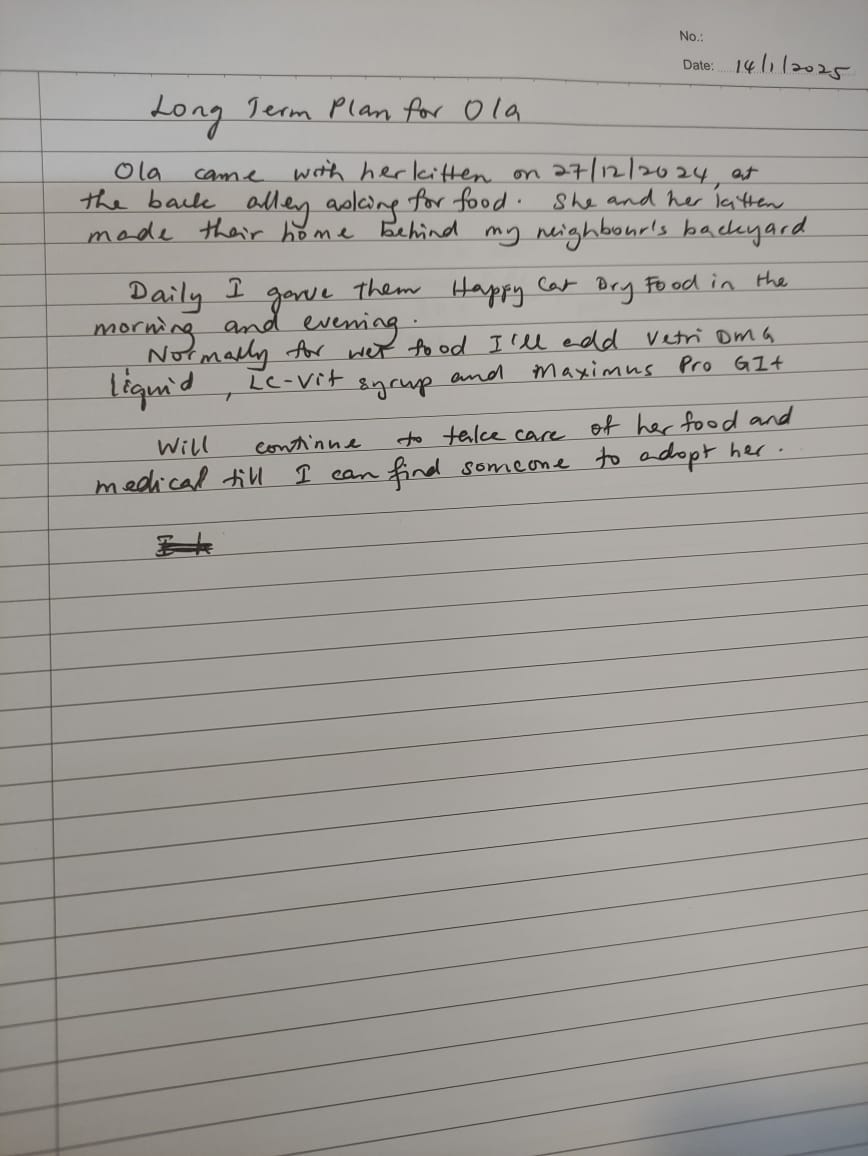 No.:
Date: 14/1/2025
Long Term Plan for Ola
Ola came with her kitten on 27/12/2024, at
the back alley asking for food. She and her kitten
made their home behind my neighbour's backyard
Daily I gave them Happy Cat Dry Food in the
morning and evening.
Normally for wet food I'll add Vetri DMG
liquid, Lc-Vit syrup and Maximus Pro GI+
Will continue to take care of her food and
medical till I can find someone to adopt her.